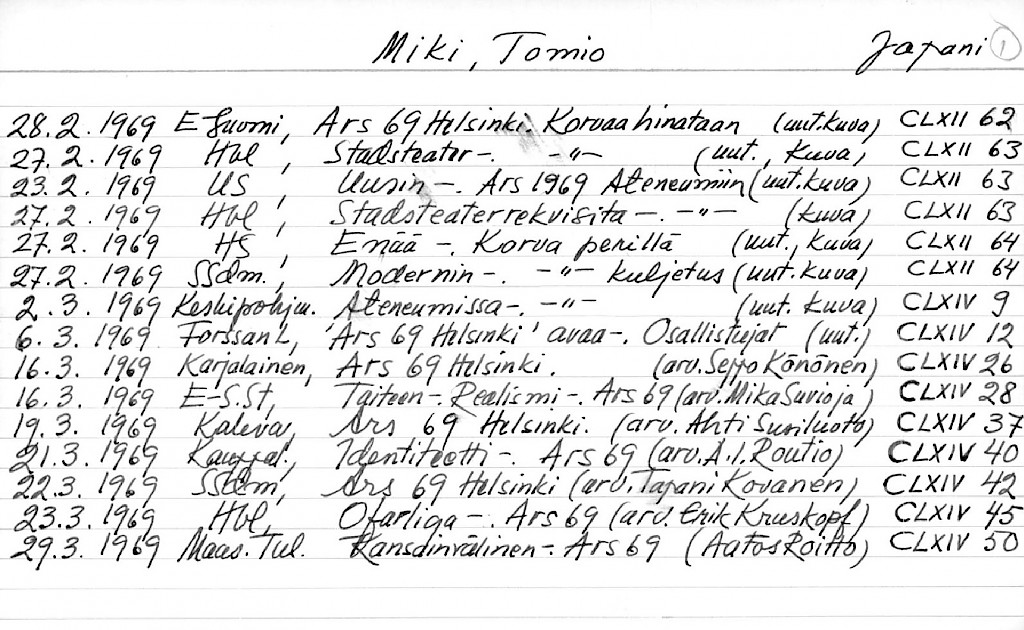 Miki, Tomio Japani 1
28.2.1969 E-Suomi, Ars 69 Helsinki. Korvaa hinataan (uut. kuva) CLXII 62
27.2.1969 Hbl, Stadsteater-. -"- (uut., kuva) CLXII 63
23.2.1969 US, Uusin-. Ars 1969 Ateneumiin (uut. kuva) CLXII 63
27.2.1969 Hbl, Stadsteaterrekvisita-. -"- (kuva) CLXII 63
27.2.1969 HS, Enää-. Korva perillä (uut., kuva) CLXII 64
27.2.1969 SSdm., Modernin-. -"- kuljetus (uut. kuva) CLXII 64
2.3.1969 Keskipohjm. Ateneumissa-. -"- (uut. kuva) CLXIV 9
6.3.1969 Forssan L, 'Ars 69 Helsinki' avaa-. Osallistujat (uut.) CLXIV 12
16.3. 1969 Karjalainen, Ars 69 Helsinki. (arv. Seppo Könönen) CLXIV 26
16.3. 1969 E-S.St, Taiteen-. Realismi-. Ars 69 (arv. Mika Suvioja) CLXIV 28
19.3. 1969 Kaleva, Ars 69 Helsinki. (arv. Ahti Susiluoto) CLXIV 37
21.3.1969 Kauppal., Identiteetti-. Ars 69 (arv. A.I. Routio) CLXIV 40
22.3.1969 SSdm, Ars 69 Helsinki (arv. Tapani Kovanen) CLXIV 42
23.3.1969 Hbl, Ofarliga-. Ars 69 (arv. Erik Kruskopf) CLXIV 45
29.3.1969 Maas. Tul. Kansainvälinen-. Ars 69 (Aatos Roitto) CLXIV 50